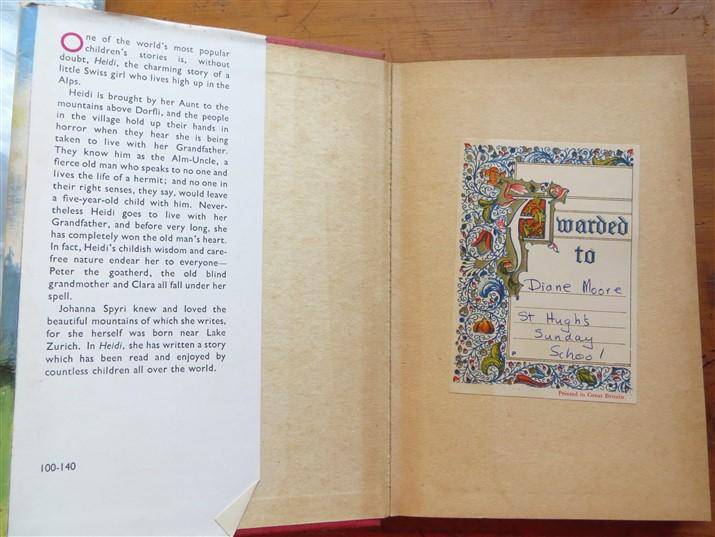 One of the world's most popular
children's stories is, without
doubt, Heidi, the charming story of a
little Swiss girl who lives high up in the
Alps.
Heidi is brought by her Aunt to the
mountains above Dorfli, and the people
in the village hold up their hands in
horror when they hear she is being
taken to live with her Grandfather.
They know him as the Alm-Uncle, a
fierce old man who speaks to no one and
lives the life of a hermit; and no one in
their right senses, they say, would leave
a five-year-old child with him. Never-
theless Heidi goes to live with her
Grandfather, and before very long, she
has completely won the old man's heart.
In fact, Heidi's childish wisdom and care-
free nature endear her to everyone—
Peter the goatherd, the old blind
grandmother and Clara all fall under her
spell.
Johanna Spyri knew and loved the
beautiful mountains of which she writes,
for she herself was born near Lake
Zurich. In Heidi, she has written a story
which has been read and enjoyed by
countless children all over the world.
100-140
Awarded
to
Diane Moore
St Hugh's
Sunday
School
Printed in Great Britain